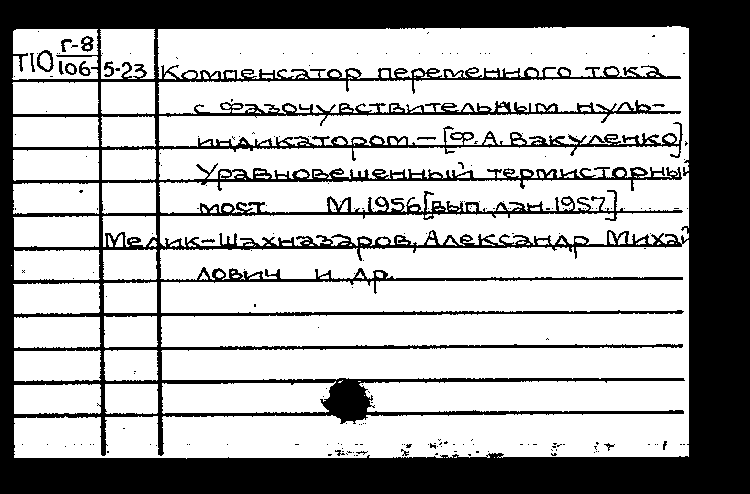 Т10 Г-8
106-5-23 Компенсатор переменного тока
с фазочувствительным нуль-
индикатором. – [Ф.А. Вакуленко].
Уравновешенный термисторный
мост М., 1956 [вып. дан. 1957].
Мелик-Шахназаров, Александр Михай
лович и др.